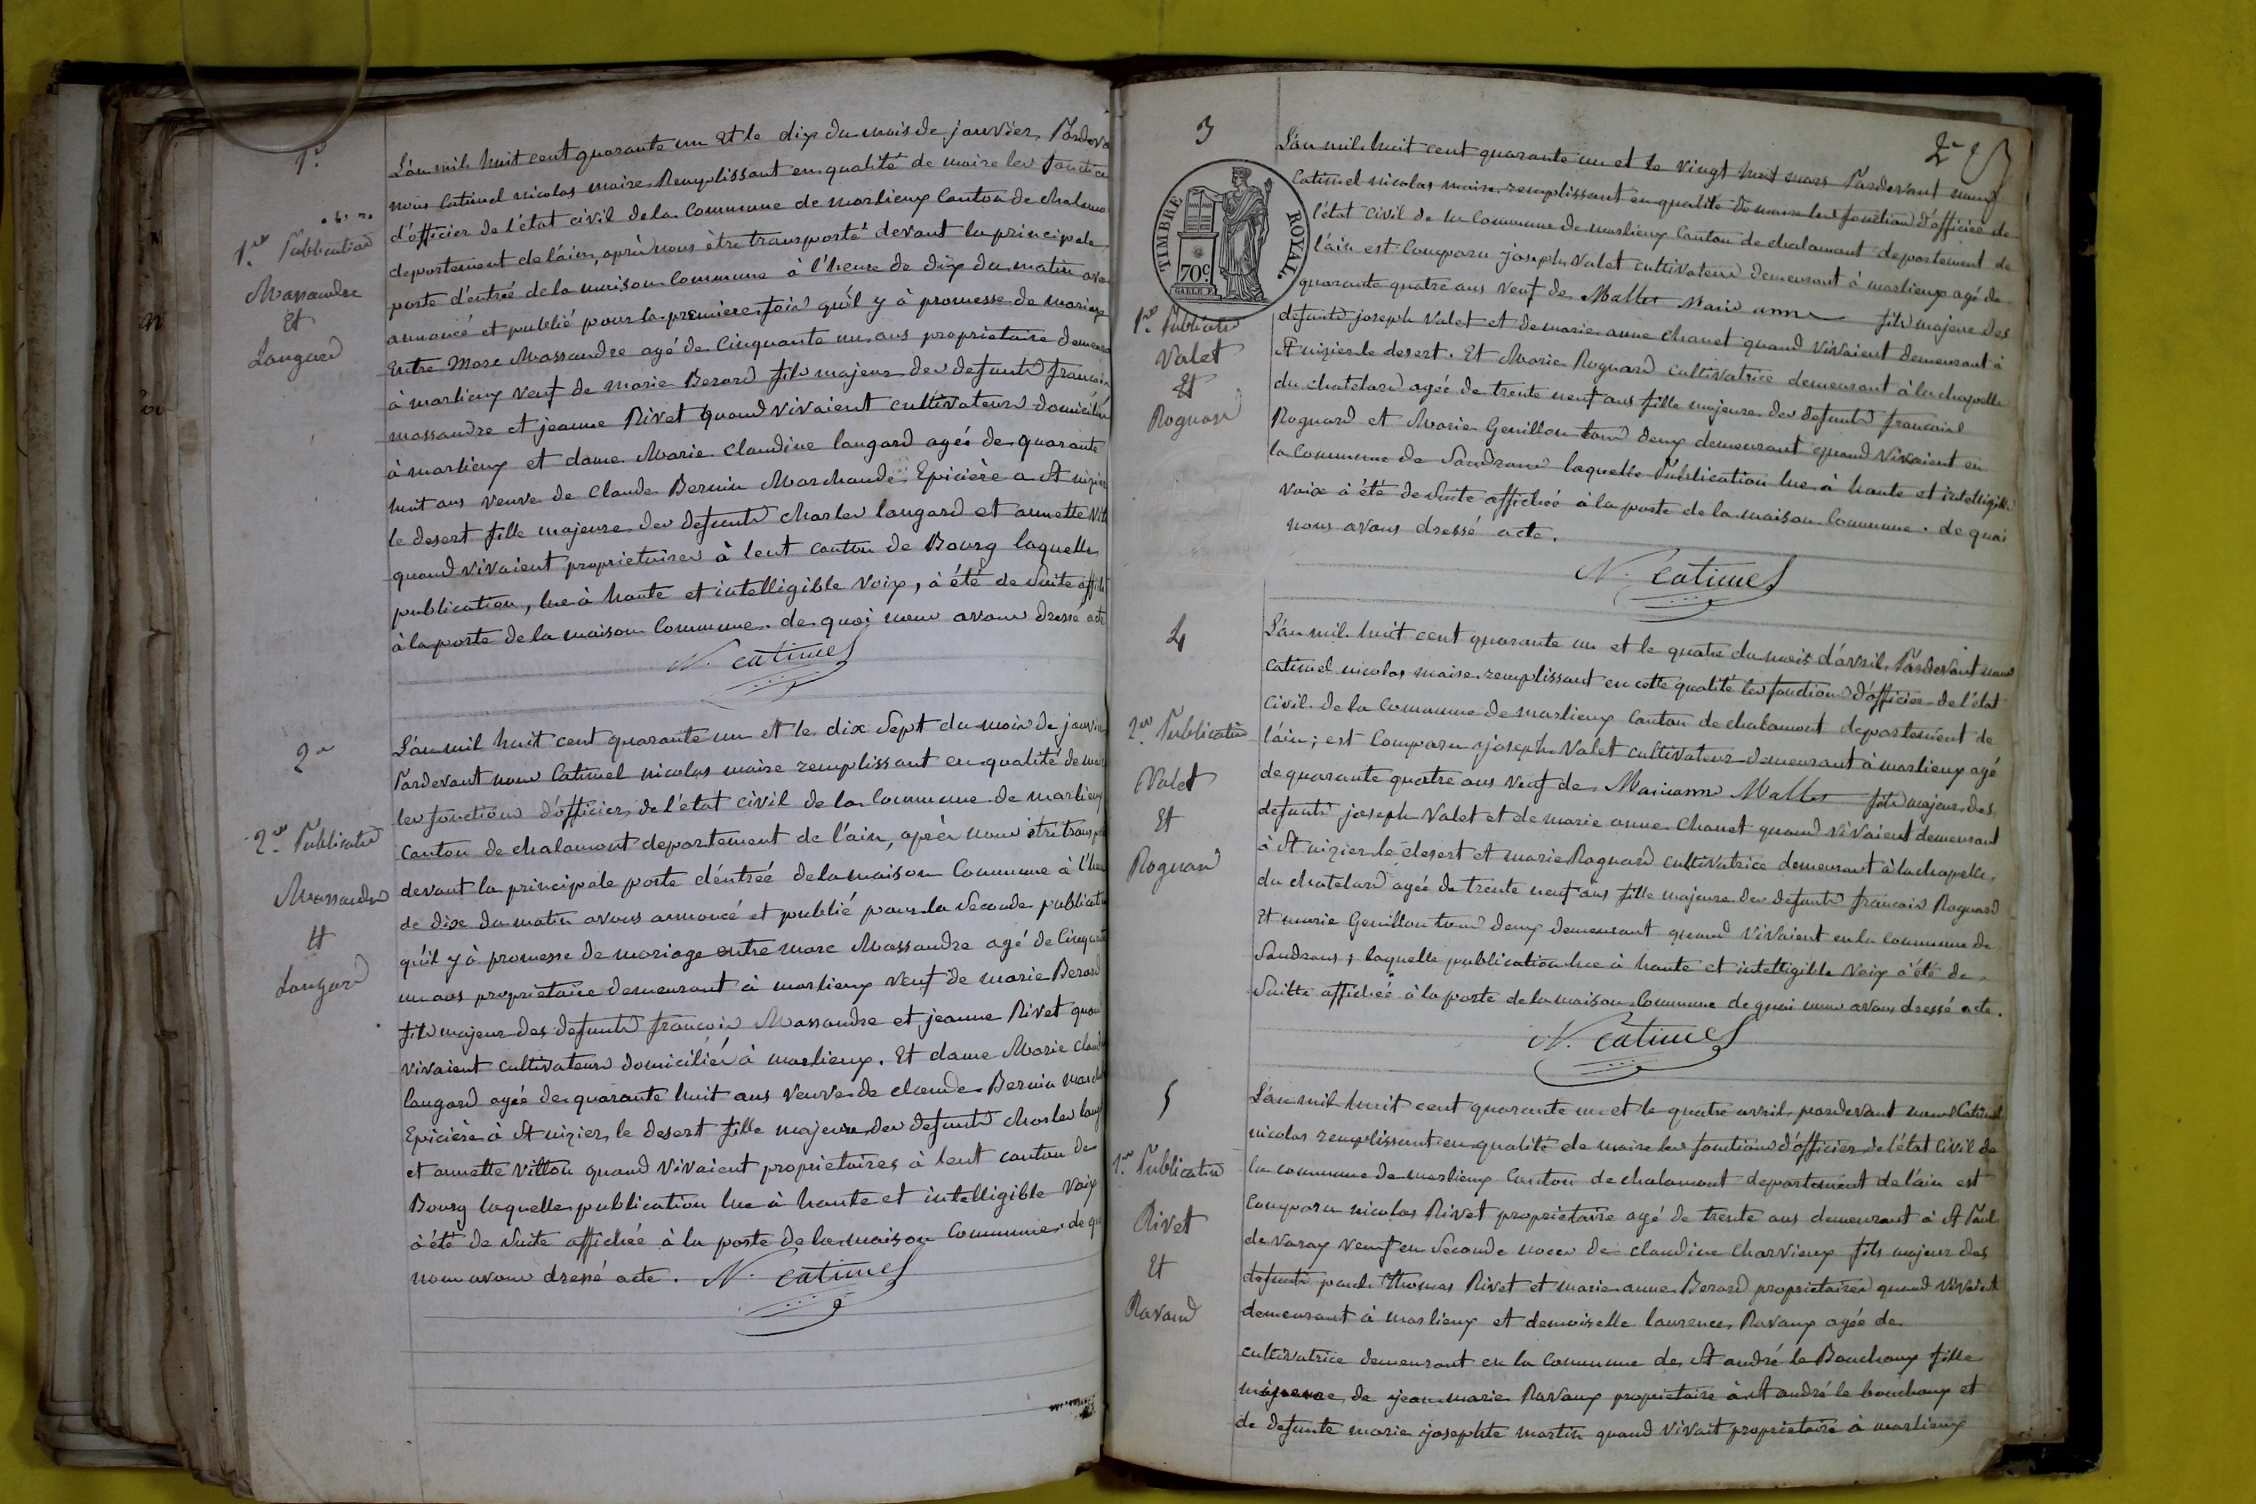 1er
1re Publication
Massandre
Et
Langard
L'an mil huit cent quarante un Et le dix du mois de janvier, Pardeva
nous Catimel nicolas maire Remplissant en qualité de maire les fonction
d'officier de l'état civil de la Commune de marlieux Canton de chalamo
departement de láin, aprè nous être transporté devant la principale
porte d'entrée de la maison Commune à l'heure de dix du matin avo
annoncé et publié pour la premiere fois qu'il y à promesse de mariage
Entre Marc Massandre agé de Cinquante un ans proprietaire demeura
à marlieux veuf de marie Berard fils majeur des defunts francois
massandre et jeanne Rivet quand vivaient cultivateurs domiciliés
à marlieux et dame Marie Claudine langard agée de quarante
huit ans veuve de Claude Bernin Marchande Epicière a St nizier
le desert fille majeure des defunts charles langard et annette Vitt
quand vivaient proprietaires à lent canton de Bourg laquelle
publication, lue à haute et intelligible voix, à été de suite affich
à la porte de la maison Commune. de quoi nous avons dressé acte
N. Catimel
2e
2e Publication
Massandre
Et
Langard
L'an mil huit cent quarante un et le dix Sept du mois de janvier
Pardevant nous Catimel nicolas maire remplissant en qualité de mair
les fonctions d'officier de l'état civil de la Commune de marlieux
Canton de chalamont departement de l'ain, aprèr nous être transpo
devant la principale porte d'éntréé de la maison Commune à l'heu
de dix du matin avons annoncé et publié pour la Seconde publicati
qu'il y à promesse de mariage entre marc Massandre agé de Cinquante
un ans proprietaire demeurant à marlieux Veuf de marie Berard
fils majeur des defunts francois Massandre et jeanne Rivet quand
vivaient cultivateurs domiciliés à marlieux. Et dame Marie Claudi
langard agée de quarante huit ans Veuve de claude Bernin march
Epicière à St nizier le desert fille majeure des defunts charles lang
et annette Vitton quand vivaient proprietaires à lent canton de
Bourg laquelle publication lue à haute et intelligible Voix
à été de suite affichéé à la porte de la maison Commune. de quo
nous avons dressé acte. N. Catimel
3
2e
TIMBRE ROYAL
70c
1re Publication
Valet
Et
Rognard
L'án mil huit cent quarante un et le vingt huit mars Pardevant nous
Catimel nicolas maire remplissant en qualité de maire les fonction d'officier de
l'état civil de la Commune de marlieux Canton de chalamont departement de
l'ain est Comparu joseph Valet cultivateur demeurant à marlieux agé de
quarante quatre ans Veuf de Mallet Marie anne fils majeur des
defunts joseph Valet et de marie anne Chanet quand vivaient demeurant à
St nizier le desert. Et Marie Rognard cultivatrice demeurant à la chapelle
du chatelard agée de trente neuf ans fille majeure des defunts francois
Rognard et Marie Genillon tous deux demeurant quand vivaient en
la Commune de Sandrans laquelle Publication lue à haute et intelligible
voix à été de suite affichéé à la porte de la maison Commune. de quoi
nous avons dressé acte.
N. Catimel
4
2e Publication
Valet
Et
Rognard
L'án mil huit cent quarante un et le quatre du mois d'avril, Pardevant nous
Catimel nicolas maire remplissant en cette qualité les fonctions d'officier de l'état
Civil de la Commune de marlieux Canton de chalamont departement de
l'ain; est Comparu joseph Valet cultivateur demeurant à marlieux agé
de quarante quatre ans Veuf de Marianne Mallet fils majeur des
defunts joseph Valet et de marie anne Chanet quand vivaient demeurant
à St nizier le desert et marie Rognard cultivatrice demeurant à la chapelle
du chatelard agée de trente neuf ans fille majeure des defunts francois Rognard
Et marie Genillon tous deux demeurant quand vivaient en la Commune de
Sandrans, laquelle publication lue à haute et intelligible Voix à été de
Suitte affichéé à la porte de la maison Commune de quoi nous avons dressé acte.
N. Catimel
5
1re Publication
Rivet
Et
Ravaux
L'án mil huit cent quarante un et le quatre avril pardevant nous Catimel
nicolas remplissant en qualité de maire les fonctions d'officier de l'état Civil de
la commune de marlieux Canton de chalamont departement de l'ain est
Comparu nicolas Rivet proprietaire agé de trente ans demeurant à St Paul
de Varax veuf en Seconde noces de claudine charvieux fils majeur des
defunts Thomas Rivet et marie anne Berard proprietaires quand vivaient
demeurant à marlieux et demoiselle laurence Ravaux agée de
cultivatrice demeurant en la Commune de St andré le Bouchoux fille
majeure de jean marie Ravaux proprietaire à St andré le bouchoux et
de defunte marie josephte martin quand vivait proprietaire à marlieux